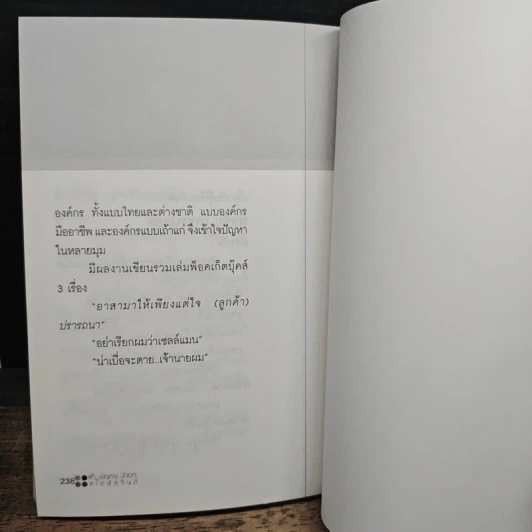 องค์กร ทั้งแบบไทยและต่างชาติ แบบองค์กร
มืออาชีพ และองค์กรแบบเถ้าแก่ จึงเข้าใจปัญหา
ในหลายมุม
มีผลงานเขียนรวมเล่มพ็อคเก็ตบุ๊คส์
3 เรื่อง
“อาสามาให้เพียงแต่ใจ (ลูกค้า)
ปรารถนา”
“อย่าเรียกผมว่าเซลล์แมน”
“น่าเบื่อจะตาย..เจ้านายผม”
238